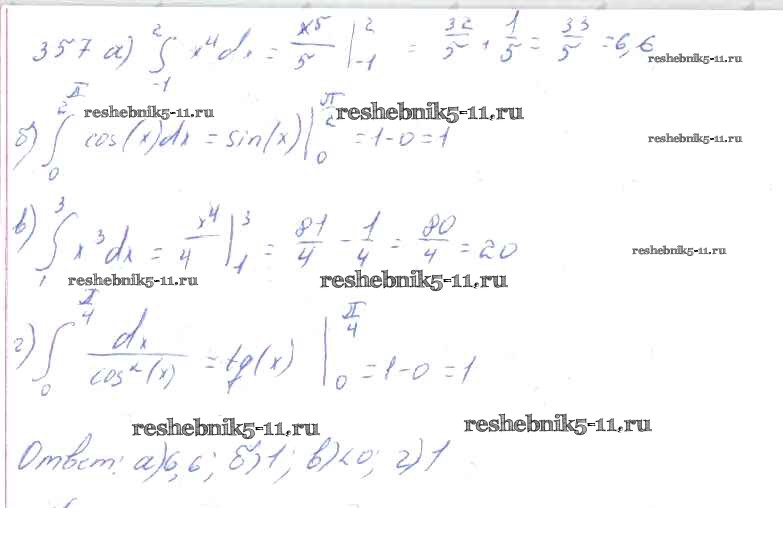 357 а) ∫₋₁² x⁴dx = x⁵/5 |₋₁² = 32/5 + 1/5 = 33/5 = 6,6
reshebnik5-11.ru
reshebnik5-11.ru reshebnik5-11.ru
б) ∫₀^(π/2) cos(x)dx = sin(x)|₀^(π/2) = 1-0=1
reshebnik5-11.ru
в) ∫₁³ x³dx = x⁴/4 |₁³ = 81/4 - 1/4 = 80/4 = 20
reshebnik5-11.ru
reshebnik5-11.ru reshebnik5-11.ru
г) ∫₀^(π/4) dx/cos²(x) = tg(x) |₀^(π/4) = 1-0 = 1
reshebnik5-11.ru reshebnik5-11.ru
Ответ: а)6,6; б)1; в)20; г)1